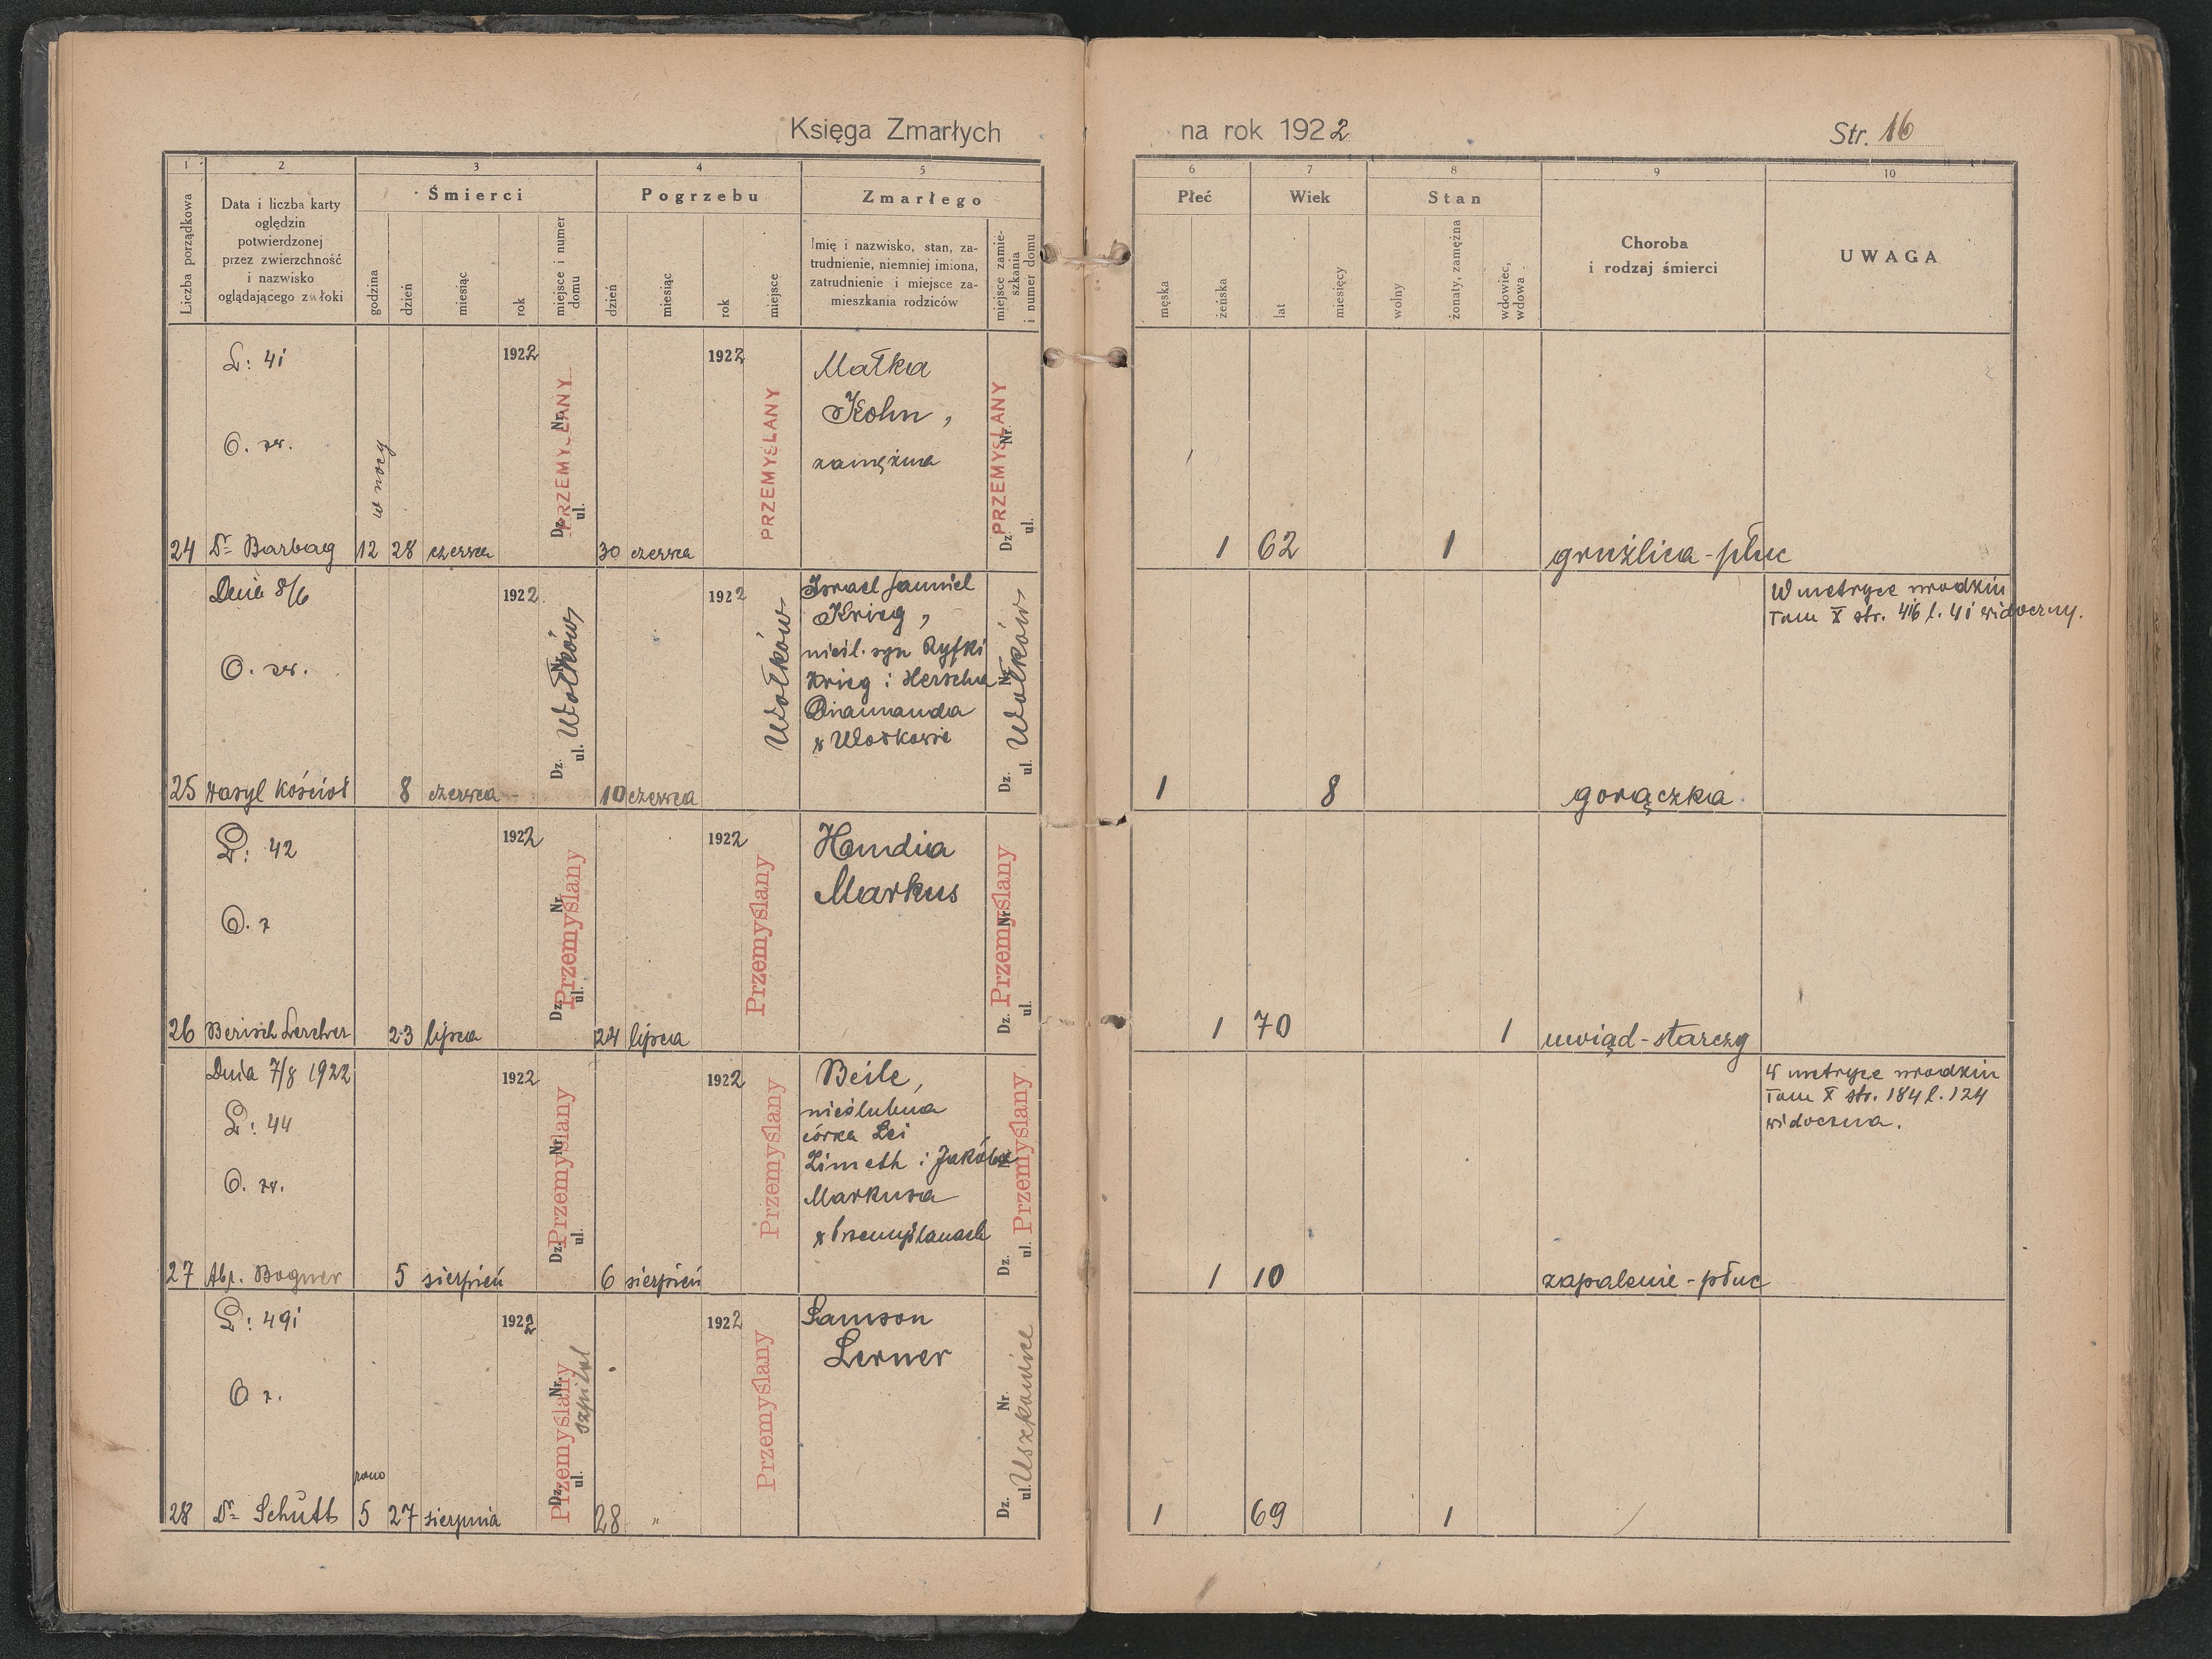 Księga Zmarłych
na rok 1922
Str. 16
1
2
3
4
5
6
7
8
9
10
Liczba porządkowa
Data i liczba karty
oględzin
potwierdzonej
przez zwierzchność
i nazwisko
oglądającego zwłoki
Śmierci
godzina
dzień
miesiąc
rok
miejsce i numer
domu
Pogrzebu
dzień
miesiąc
rok
miejsce
Zmarłego
Imię i nazwisko, stan, za-
trudnienie, niemniej imiona,
zatrudnienie i miejsce za-
mieszkania rodziców
miejsce zamie-
szkania
i numer domu
Płeć
męska
żeńska
Wiek
lat
miesięcy
Stan
wolny
żonaty, zamężna
wdowiec,
wdowa
Choroba
i rodzaj śmierci
UWAGA
L: 41
O. zw.
24 Dr Barbag
w nocy
12 28 czerwca
1922
PRZEMYŚLANY
Dz. Nr.
ul.
30 czerwca
1922
PRZEMYŚLANY
Małka
Kohn,
zamężna
PRZEMYŚLANY
Dz. Nr.
ul.
1 62 1
gruźlica-płuc
Dnia 8/6
O. zw.
25 Wasyl Kościoł
8 czerwca
1922
Wołków
Dz. Nr.
ul.
10 czerwca
1922
Wołków
Israel Samuel
Krieg,
nieśl. syn Ryfki
Krieg i Herscha
Diamanda
w Wołkowie
Wołków
Dz. Nr.
ul.
1 8
gorączka
W metryce urodzin
Tom X str. 416 l. 41 widoczny.
L: 42
O. z
26 Berisch Lercher
23 lipca
1922
Przemyślany
Dz. Nr.
ul.
24 lipca
1922
Przemyślany
Hendia
Markus
Przemyślany
Dz. Nr.
ul.
1 70 1
uwiąd-starczy
Dnia 7/8 1922
L: 44
O. zw.
27 Abr. Bogner
5 sierpień
1922
Przemyślany
Dz. Nr.
ul.
6 sierpień
1922
Przemyślany
Beile,
nieślubna
córka Lei
Zimeth i Jakóba
Markusa
w Przemyślanach
Przemyślany
Dz.
ul.
1 10
zapalenie-płuc
W metryce urodzin
Tom X str. 184 l. 124
widoczna.
L: 491
O z.
28 Dr Schütt
rano
5 27 sierpnia
1922
Przemyślany
szpital
Dz. Nr.
ul.
28 "
1922
Przemyślany
Samson
Lerner
Uszkowice
Dz. Nr.
ul.
1 69 1